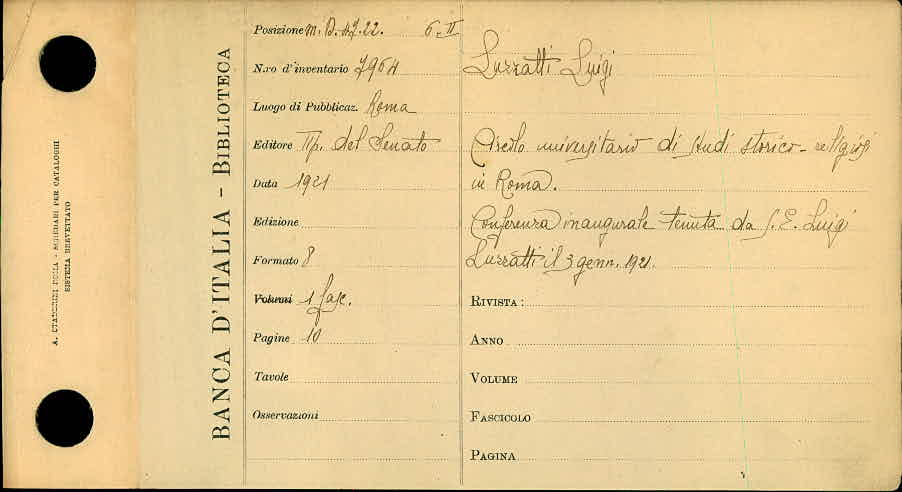 A. STADERINI ROMA - SCHEDARI PER CATALOGHI
SISTEMA BREVETTATO
BANCA D'ITALIA - BIBLIOTECA
Posizione 6-II
N.ro d'inventario 7964
Luogo di Pubblicaz. Roma
Editore Tip. del Senato
Data 1921
Edizione
Formato 8
Volumi 1 fasc.
Pagine 10
Tavole
Osservazioni
Luzzatti Luigi
Circolo universitario di studi storico-religiosi
in Roma.
Conferenza inaugurale tenuta da S. E. Luigi
Luzzatti il 3 genn. 1921.
RIVISTA:
ANNO
VOLUME
FASCICOLO
PAGINA